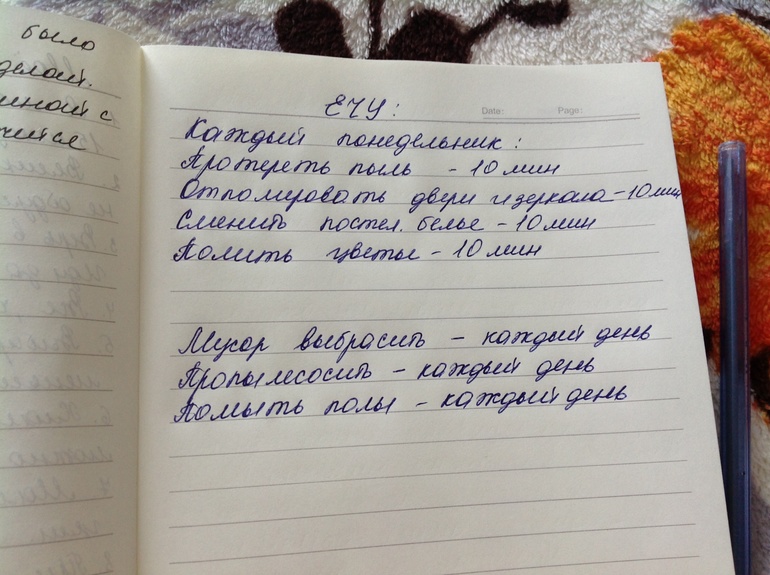 было
делай.
Date: Page:
ЕЧУ:
Каждый понедельник:
Протереть пыль - 10 мин
Отполировать двери и зеркала - 10 мин
Сменить постел. белье - 10 мин
Полить цветы - 10 мин
Мусор выбрасить - каждый день
Пропылесосить - каждый день
Помыть полы - каждый день